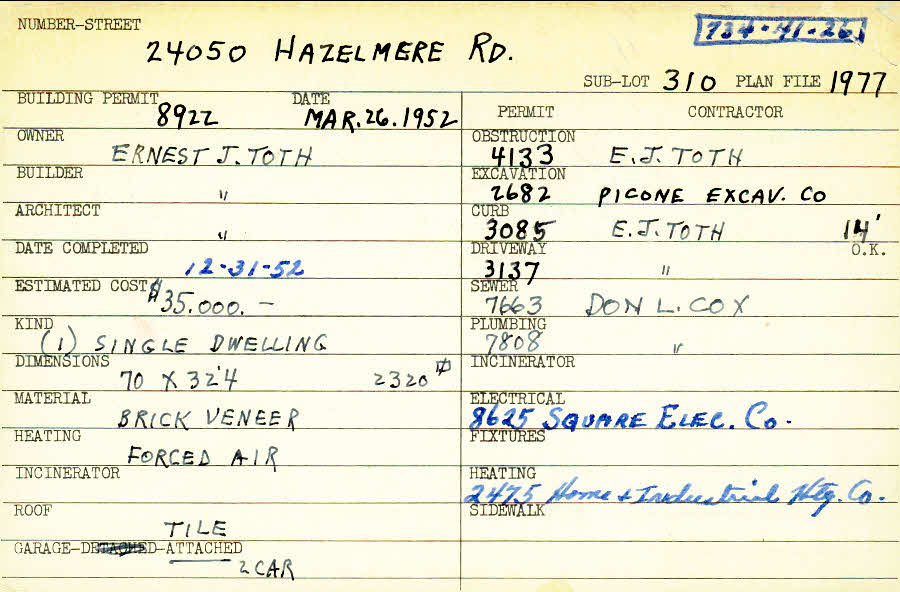 NUMBER-STREET
24050 HAZELMERE RD.
734-41-26
SUB-LOT 310 PLAN FILE 1977
BUILDING PERMIT 8922 DATE MAR. 26. 1952
OWNER
ERNEST J. TOTH
BUILDER
"
ARCHITECT
"
DATE COMPLETED
12-31-52
ESTIMATED COST
$35.000. —
KIND
(1) SINGLE DWELLING
DIMENSIONS
70 X 32'4 2320
MATERIAL
BRICK VENEER
HEATING
FORCED AIR
INCINERATOR
ROOF
TILE
GARAGE-DETACHED-ATTACHED
2 CAR
PERMIT CONTRACTOR
OBSTRUCTION
4133 E.J. TOTH
EXCAVATION
2682 PICONE EXCAV. CO
CURB
3085 E.J. TOTH 14'
DRIVEWAY O.K.
3137 "
SEWER
7663 DON L. COX
PLUMBING
7808 "
INCINERATOR
ELECTRICAL
8625 SQUARE ELEC. CO.
FIXTURES
HEATING
2475 Home + Industrial Htg. Co.
SIDEWALK